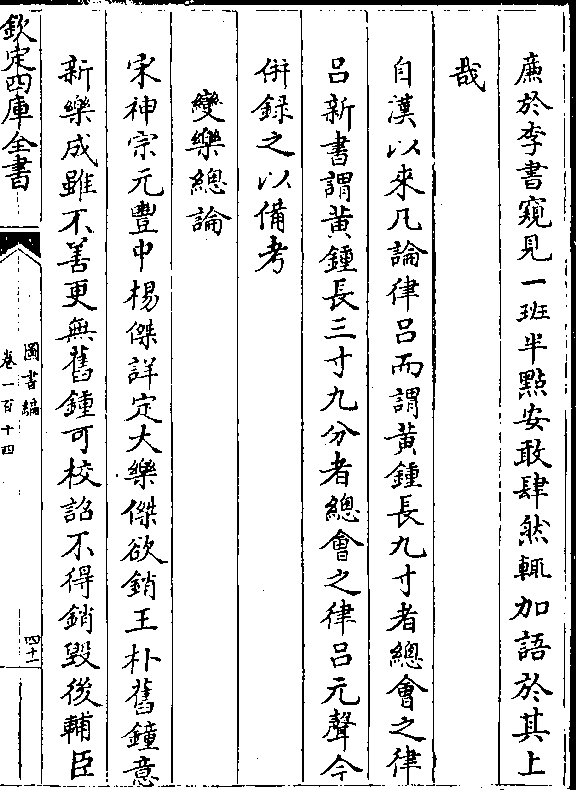 廉於李書窺見一班半點安敢肆然輒加語於其上
哉
自漢以來凡論律呂而謂黃鍾長九寸者總會之律
呂新書謂黃鍾長三寸九分者總會之律呂元聲今
併録之以備考
變樂總論
宋神宗元豐中楊傑詳定大樂傑欲銷王朴舊鐘意
新樂成雖不善更無舊鍾可校詔不得銷毀後輔臣
欽定四庫全書
圖書編
卷一百十四
四十一